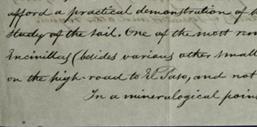 afford a practical demonstration of
study of the soil. One of the most
Encinillas (besides various other small
on the high-road to El Paso, and not
In a mineralogical poin